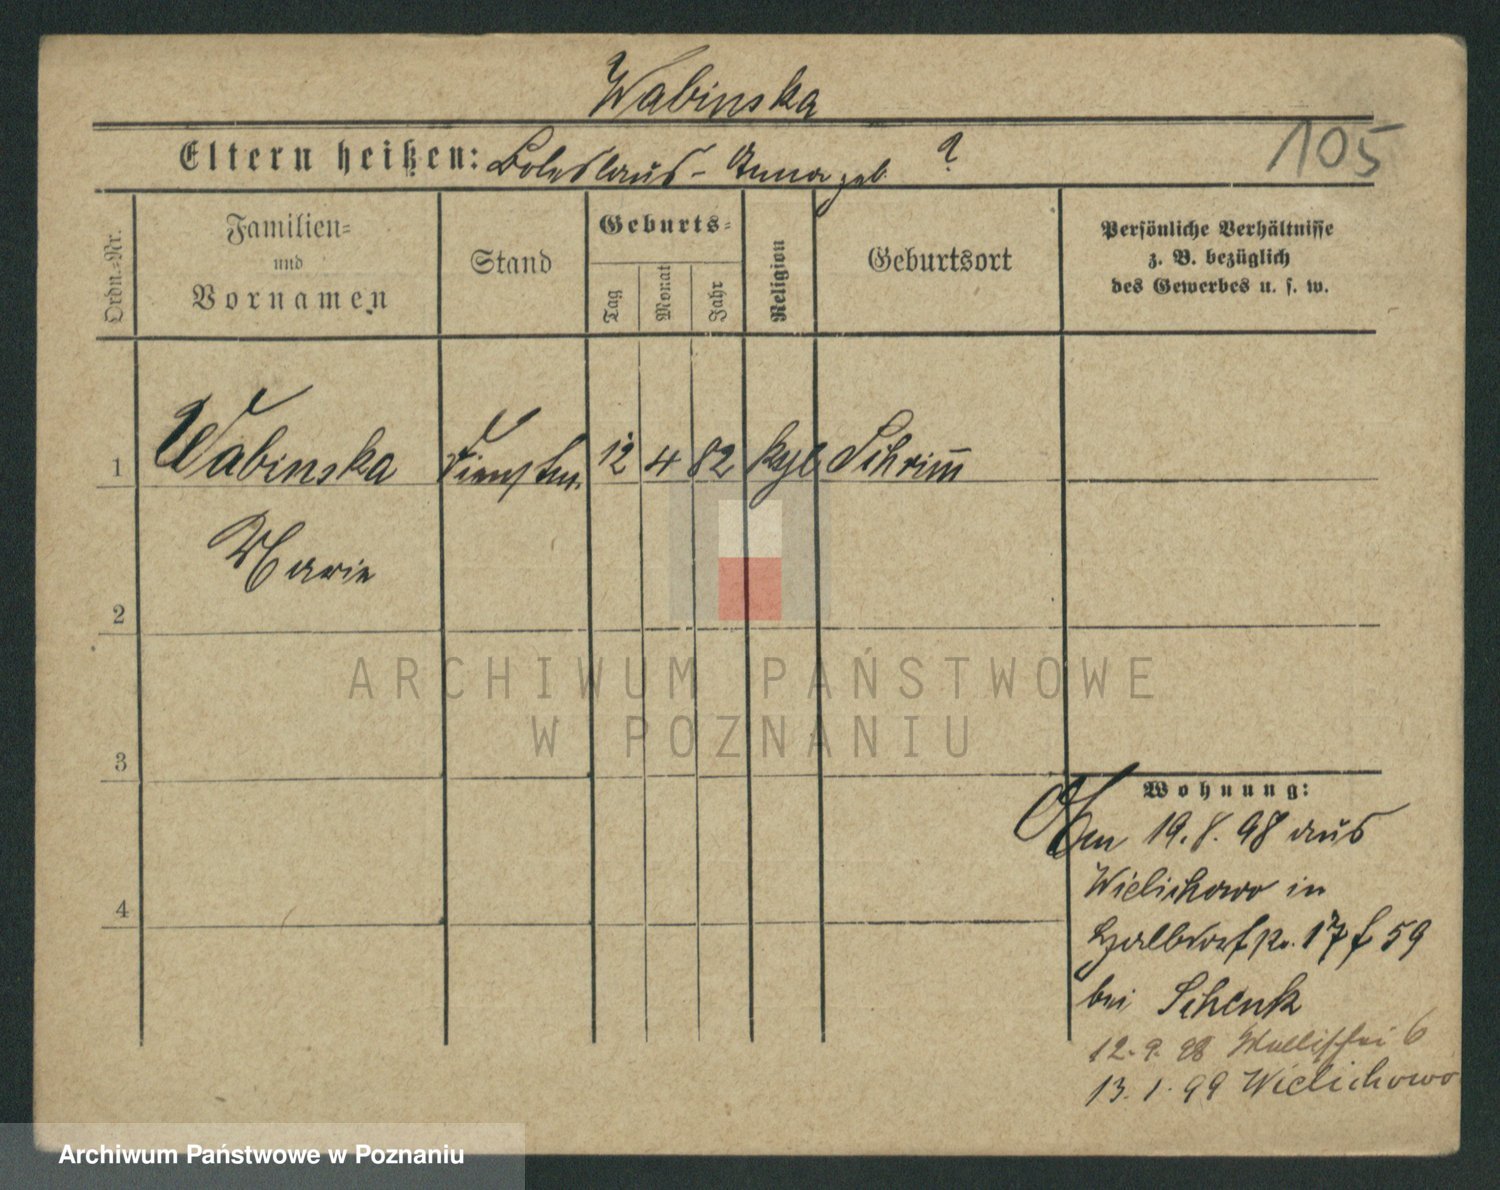 Wabinska
105
Eltern heißen: Boleslaus - Anna geb. ?
Ordn.-Nr.
Familien-
und
Vornamen
Stand
Geburts-
Tag
Monat
Jahr
Religion
Geburtsort
Persönliche Verhältnisse
z. B. bezüglich
des Gewerbes u. s. w.
1 Wabinska 12 4 82 Schrim̅
Marie
2
3
4
ARCHIWUM PAŃSTWOWE
W POZNANIU
Wohnung:
Am 19.8.98 aus
Wielichowo in
Halbdorfstr. 17 f 59
bei Schenk
12.9.98 Wallischei 6
13.1.99 Wielichowo
Archiwum Państwowe w Poznaniu